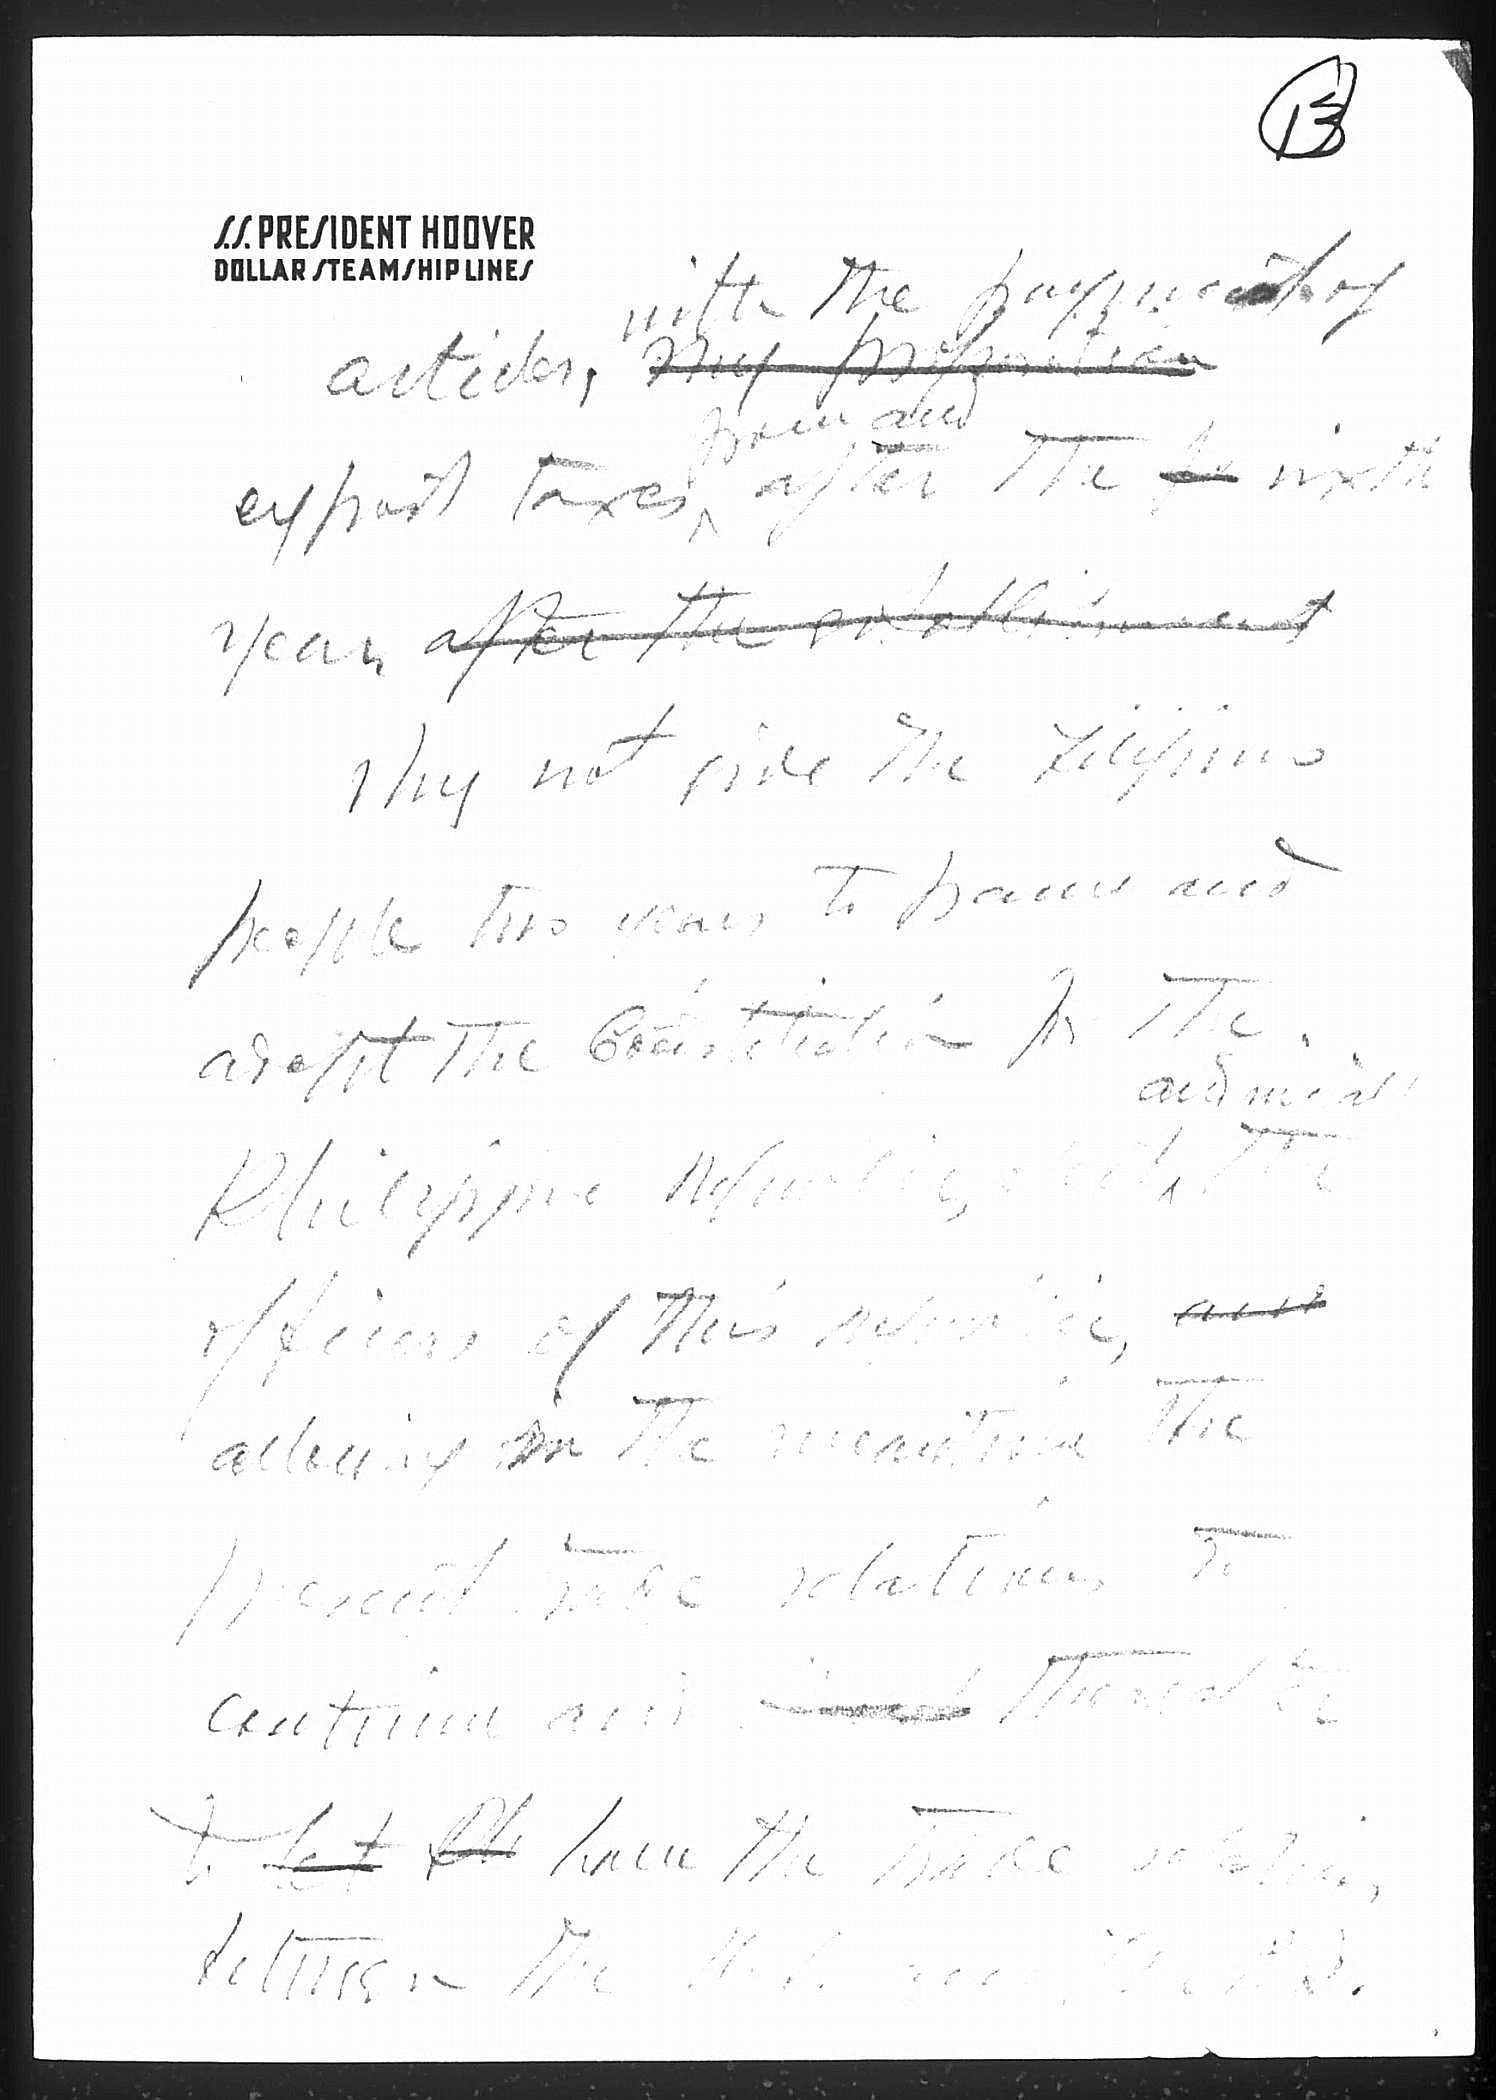 13
S.S. PRESIDENT HOOVER
DOLLAR STEAMSHIP LINES
with the payment of
articles, why proposition
from and
export taxes after the sixth
year, after the establishment
Why not give the Filipino
people two years to frame and
adopt the Constitution for the
and
Philippine republic, elect the
officers of this republic, and
allowing in the meantime the
present trade relations to
continue and thereafter
to let have the trade relations
between the U.S. and the P.I.